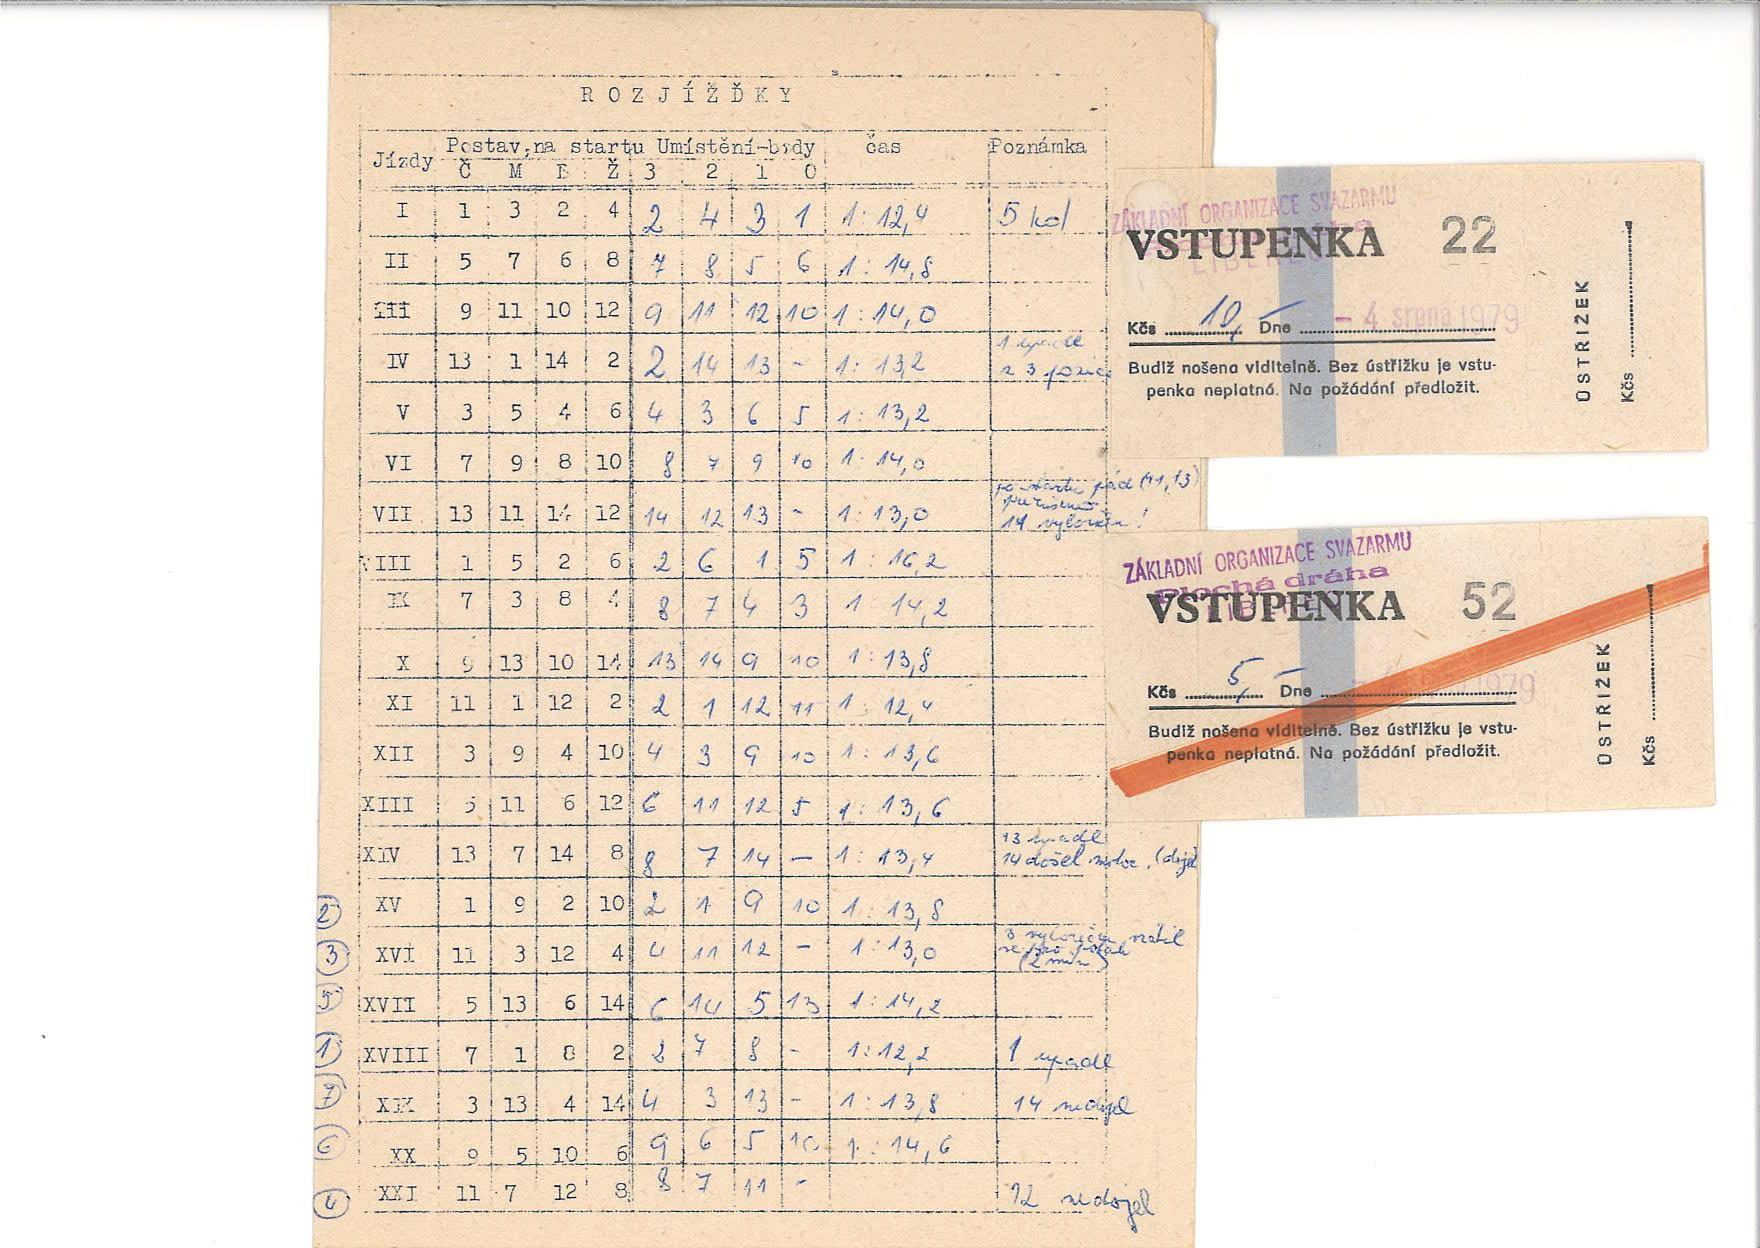 ROZJÍŽĎKY
Jízdy Postav. na startu Umístění-body čas Poznámka
Č M B Ž 3 2 1 0
I 1 3 2 4 2 4 3 1 1:12,4 5 kol
II 5 7 6 8 7 8 5 6 1:14,8
III 9 11 10 12 9 11 12 10 1:14,0
IV 13 1 14 2 2 14 13 - 1:13,2 1 upadl z 3 pozice
V 3 5 4 6 4 3 6 5 1:13,2
VI 7 9 8 10 8 7 9 10 1:14,0
VII 13 11 14 12 14 12 13 - 1:13,0 po startu pád (11,13)
11 vyloučen!
VIII 1 5 2 6 2 6 1 5 1:16,2
IX 7 3 8 4 8 7 4 3 1:14,2
X 9 13 10 14 13 14 9 10 1:13,8
XI 11 1 12 2 2 1 12 11 1:12,4
XII 3 9 4 10 4 3 9 10 1:13,6
XIII 5 11 6 12 6 11 12 5 1:13,6
XIV 13 7 14 8 8 7 14 - 1:13,4 13 upadl
14 došel
2 XV 1 9 2 10 2 1 9 10 1:13,8
3 XVI 11 3 12 4 4 11 12 - 1:13,0 3 vyloučen vrátil
(2 min)
5 XVII 5 13 6 14 6 14 5 13 1:14,2
1 XVIII 7 1 8 2 2 7 8 - 1:12,2 1 upadl
7 XIX 3 13 4 14 4 3 13 - 1:13,8 14 nedojel
6 XX 9 5 10 6 9 6 5 10 1:14,6
4 XXI 11 7 12 8 8 7 11 - 12 nedojel
ZÁKLADNÍ ORGANIZACE SVAZARMU
VSTUPENKA 22
Kčs 10,- Dne - 4 srpna 1979
Budiž nošena viditelně. Bez ústřižku je vstu-
penka neplatná. Na požádání předložit.
OSTŘIŽEK
Kčs
ZÁKLADNÍ ORGANIZACE SVAZARMU
Plochá dráha
VSTUPENKA 52
Kčs 5,- Dne 1979
Budiž nošena viditelně. Bez ústřižku je vstu-
penka neplatná. Na požádání předložit.
OSTŘIŽEK
Kčs